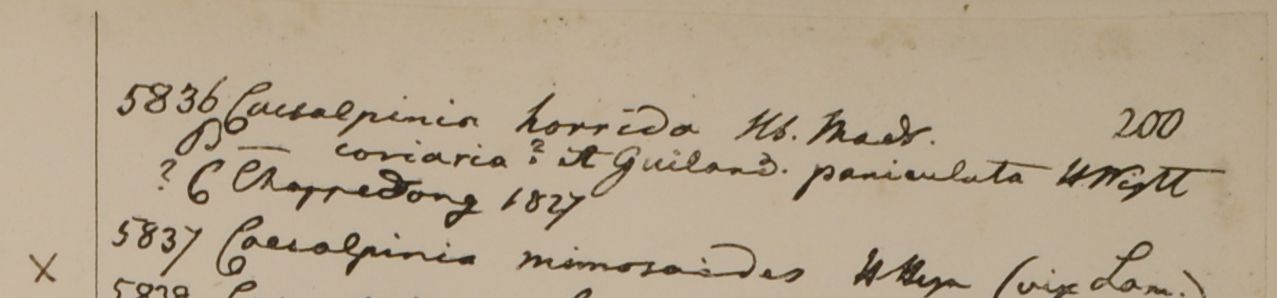 5836 Caesalpinia horrida Hb. Madr. 200
B — coriaria? et Guiland. paniculata H Wight
? C Chappedong 1827
5837 Caesalpinia mimosoides H Heyn (vix Lam.)
X
5838